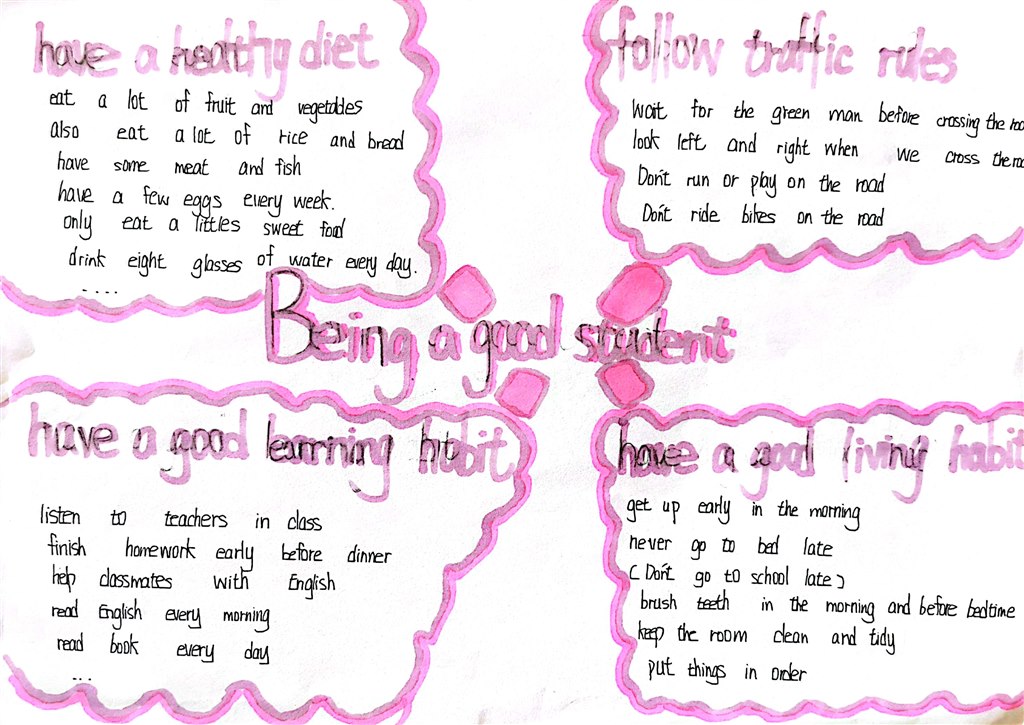 have a healthy diet
eat a lot of fruit and vegetables
also eat a lot of rice and bread
have some meat and fish
have a few eggs every week.
only eat a littles sweet food
drink eight glasses of water every day.
....
follow traffic rules
Wait for the green man before crossing the roa
look left and right when we cross the roa
Don't run or play on the road
Don't ride bikes on the road
Being a good student
have a good learning habit
listen to teachers in class
finish homework early before dinner
help classmates with English
read English every morning
read book every day
...
have a good living habit
get up early in the morning
never go to bed late
(Don't go to school late)
brush teeth in the morning and before bedtime
keep the room clean and tidy
put things in order